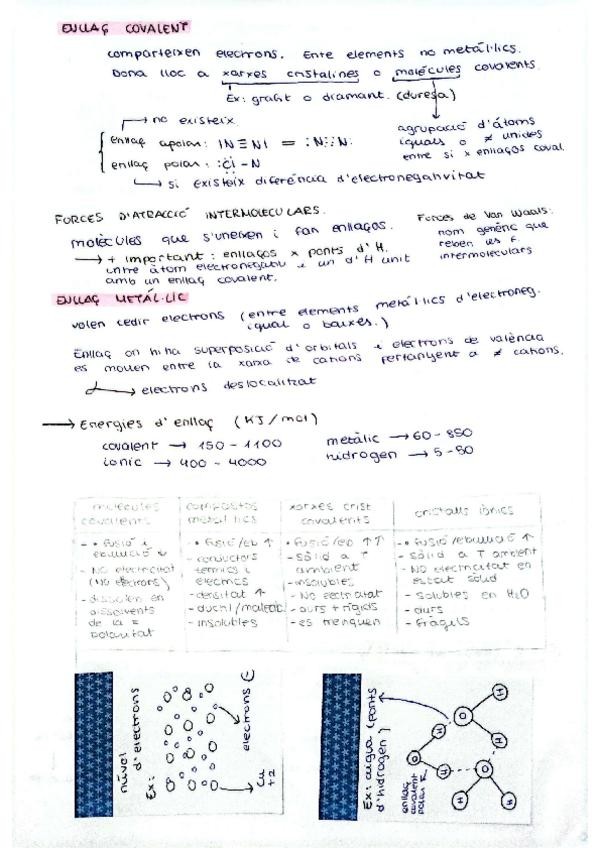 ENLLAÇ COVALENT
comparteixen electrons. Entre elements no metàl·lics.
Dona lloc a xarxes cristalines o molècules covalents.
Ex: grafit o diamant. (duresa)
no existeix
enllaç apolar: IN≡NI = :N⋮⋮N:
enllaç polar: :Cl - N
si existeix diferència d'electronegativitat
agrupació d'àtoms
iguals o ≠ unides
entre si x enllaços coval.
FORCES D'ATRACCIÓ INTERMOLECULARS.
molècules que s'uneixen i fan enllaços.
→ + important: enllaços x ponts d'H.
entre àtom electronegatiu i un d'H unit
amb un enllaç covalent.
Forces de Van Waals:
nom genèric que
reben les f.
intermoleculars
ENLLAÇ METÀL·LIC
volen cedir electrons (entre elements metàl·lics d'electroneg.
igual o baixes.)
Enllaç on hi ha superposició d'orbitals i electrons de valència
es mouen entre la xarxa de cations pertanyent a ≠ cations.
electrons deslocalitzat
→ Energies d'enllaç (KJ/mol)
covalent → 150 - 1100
iònic → 400 - 4000
metàlic → 60 - 850
hidrogen → 5 - 50
molècules
covalents
- • fusió i
ebullició ↓
- NO electricitat
(NO electrons)
- dissolen en
dissolvents
de la =
polaritat
compostos
metal·lics
- • fusió/eb ↑
- conductors
tèrmics i
elèctrics
- densitat ↑
- ductil/maleab.
- insolubles
xarxes crist
covalents
• fusió/eb ↑↑
- sòlid a T
ambient
- insolubles
- No electricitat
- durs + rígids
- es trenquen
cristalls iònics
- • fusió/ebullició ↑
- sòlid a T ambient
- NO electricitat en
estat sòlid
- solubles en H₂O
- durs
- fràgils
núvol
d'electrons
Ex:
electrons (-
Cu
+2
Ex: aigua (ponts
d'hidrogen)
enllaç
covalent
polar
H
O
H
H
O
H
O
H
H